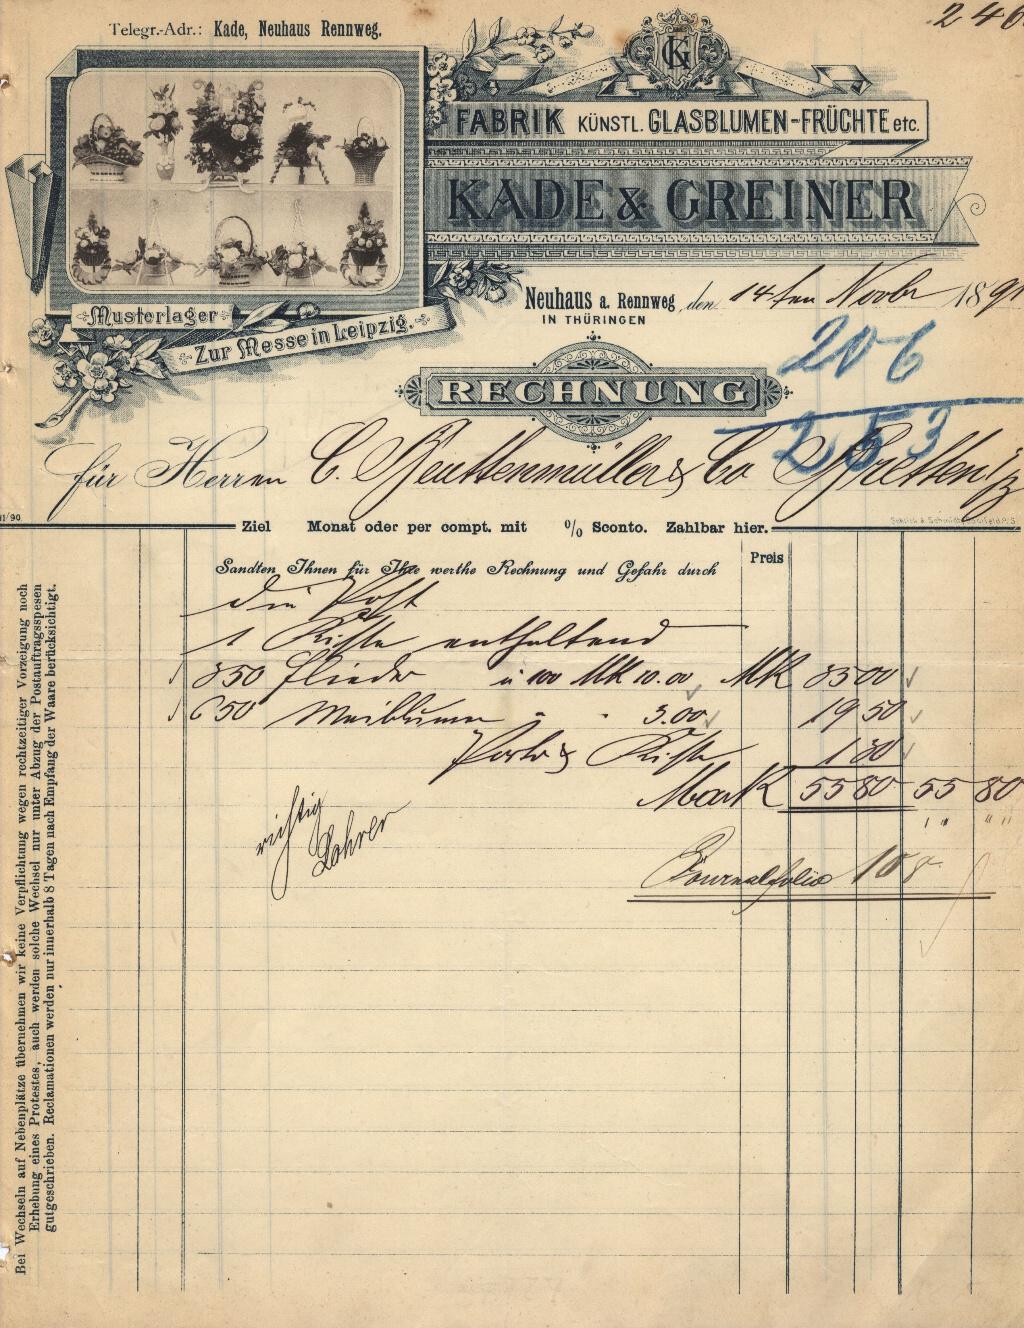 246
Telegr.-Adr.: Kade, Neuhaus Rennweg.
GK
FABRIK KÜNSTL. GLASBLUMEN-FRÜCHTE etc.
KADE & GREINER
Musterlager
Zur Messe in Leipzig.
Neuhaus a. Rennweg, den 14ten Novbr 1891
IN THÜRINGEN
206
RECHNUNG
253
für Herren C. Beuttenmüller & Co Bretten
11/90.
Ziel Monat oder per compt. mit % Sconto. Zahlbar hier.
Preis
Sandten Ihnen für Ihre werthe Rechnung und Gefahr durch
die Post
1 Kiste enthaltend
350 Flieder à 100 Mk 10.00 Mk 35 00
650 Maiblumen " " 3.00 19 50
Porto & Kiste 1 30
Mark 55 80 55 80
richtig
Lohrer
Journalfolio 108
Bei Wechseln auf Nebenplätze übernehmen wir keine Verpflichtung wegen rechtzeitiger Vorzeigung noch
Erhebung eines Protestes, auch werden solche Wechsel nur unter Abzug der Postauftragsspesen
gutgeschrieben. Reclamationen werden nur innerhalb 8 Tagen nach Empfang der Waare berücksichtigt.